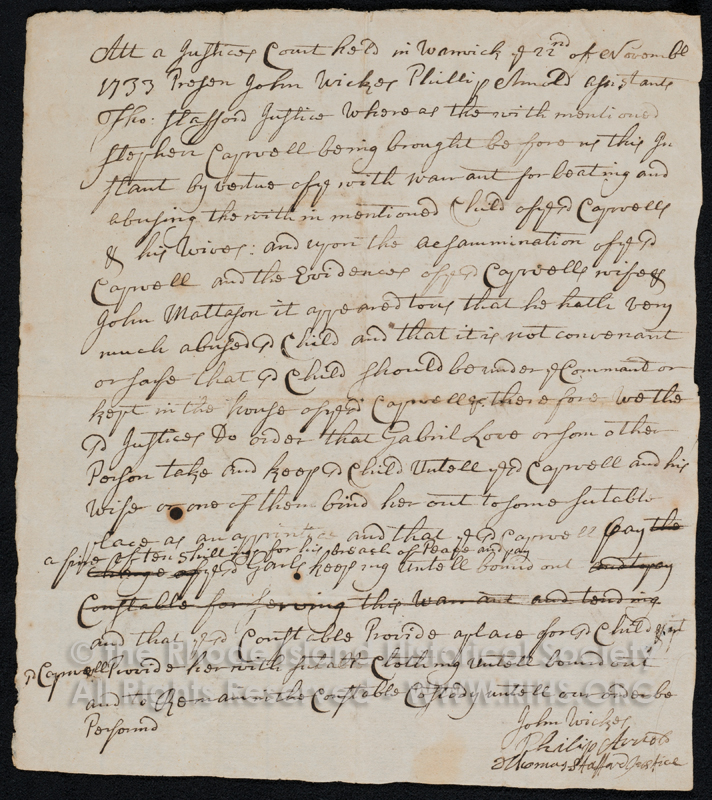 Att a Justices Court held in Warwick ye 22nd of Novembr
1733 Presen John Wickes Phillip Arnold assistants
Tho: Stafford Justice Where as the with mentioned
Stephen Capwell being brought be fore us this In
stant by vertue of ye with warrant for beating and
abusing the with in mentioned Child of ye sd Capwells
& his Wives: and upon the aesammination of ye sd
Capwell and the Evidences of ye sd Capwells wife &
John Mattason it appeared to us that he hath very
much abused sd Child and that it is not convenant
or safe that sd Child should be under ye Command or
kept in the house of ye sd Capwell &c therefore we the
sd Justices Do order that Gabril Love or som other
Person take and keep sd Child Untell ye sd Capwell and his
Wife or one of them bind her out to some sutable
place as an apprintice and that ye sd Capwell pay the
a fine of ten shillings for his breach of Peace and pay
Charge of ye sd Garls keeping Untell bound out and to pay
Constable for serving this Warrant and tending
and that ye sd Constable Provide a place for sd Child &
sd Capwell Provide her with Clothing untell bound out
and to Remain in the Constable Costody untell our order be
Performd
John Wickes
Philip Arnold
Thomas Stafford Justice
© The Rhode Island Historical Society
All Rights Reserved WWW.RIHS.ORG